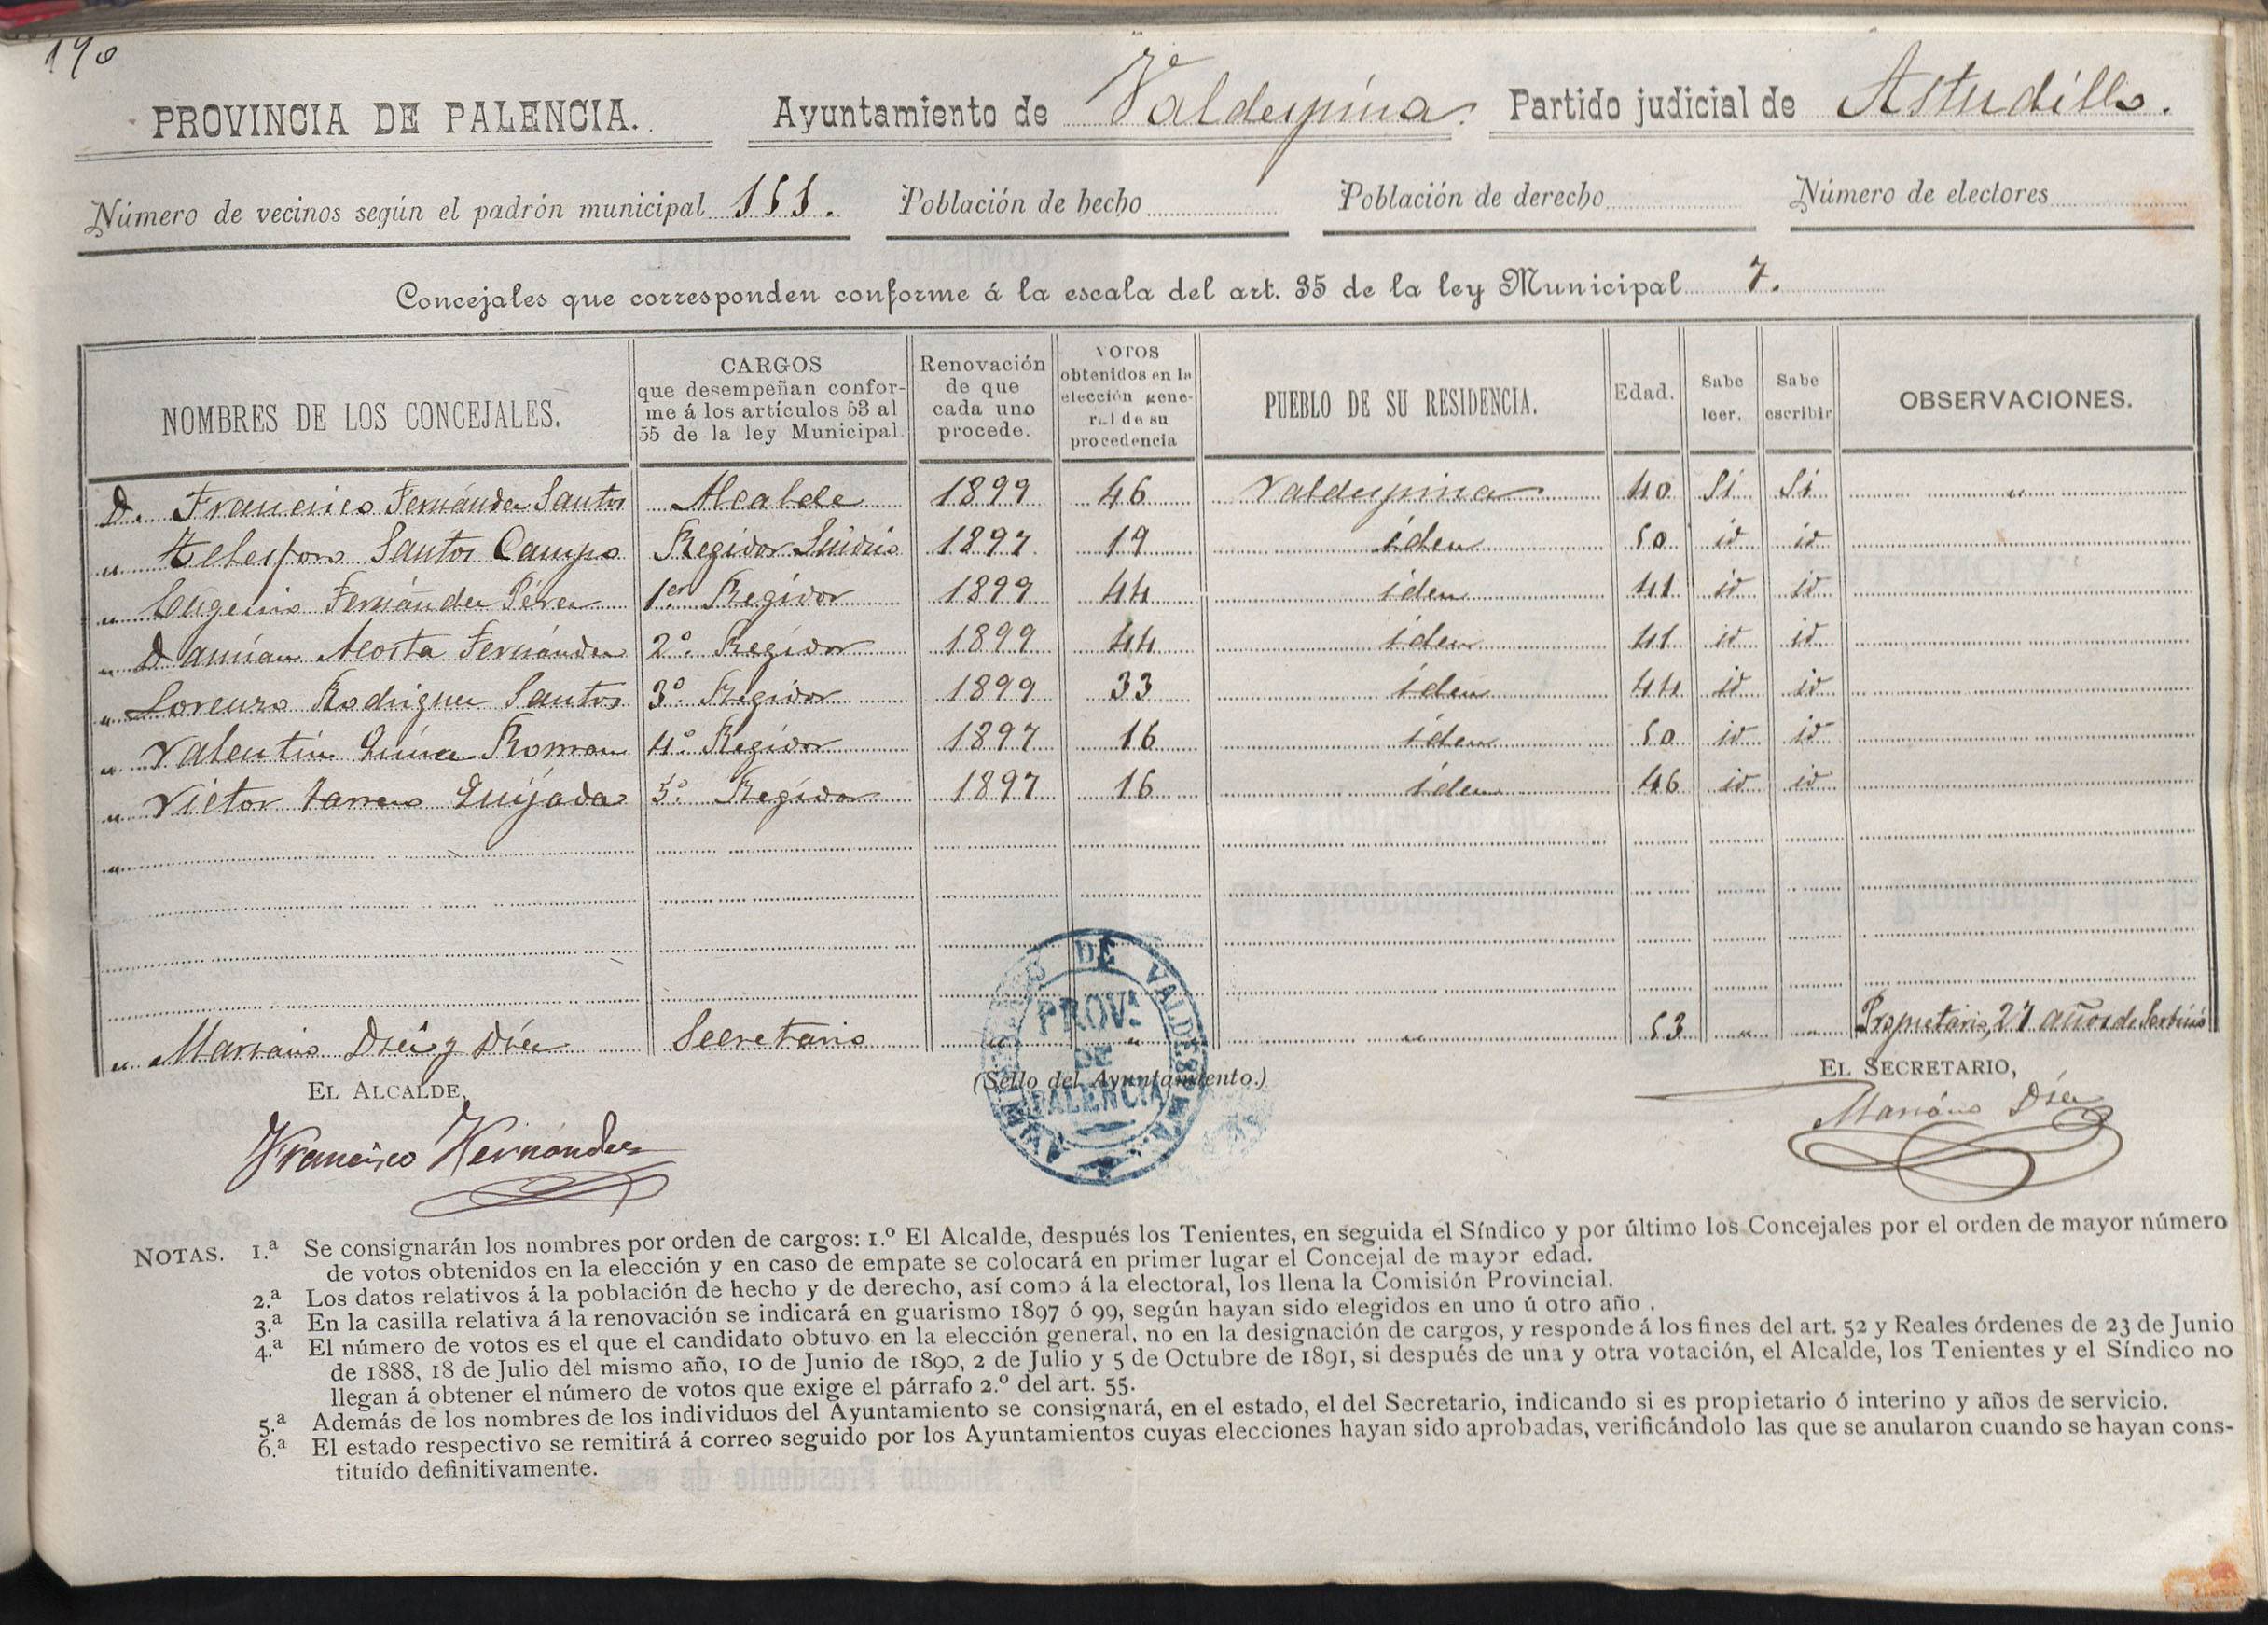 190
PROVINCIA DE PALENCIA. Ayuntamiento de Valdespina. Partido judicial de Astudillo.
Número de vecinos según el padrón municipal 151. Población de hecho Población de derecho Número de electores
Concejales que corresponden conforme á la escala del art. 35 de la ley Municipal 7.
NOMBRES DE LOS CONCEJALES. CARGOS que desempeñan confor- me á los artículos 53 al 55 de la ley Municipal. Renovación de que cada uno procede. VOTOS obtenidos en la elección gene- ral de su procedencia PUEBLO DE SU RESIDENCIA. Edad. Sabe leer. Sabe escribir OBSERVACIONES.
D. Francisco Fernández Santos Alcalde 1899 46 Valdespina 40 Si Si "
" Telesforo Santos Campo Regidor Sindico 1897 19 iden 50 id id
" Eugenio Fernández Pérez 1er Regidor 1899 44 iden 41 id id
" Damián Acosta Fernández 2º Regidor 1899 44 iden 41 id id
" Lorenzo Rodriguez Santos 3º Regidor 1899 33 iden 44 id id
" Valentin Román 4º Regidor 1897 16 iden 50 id id
" Victor Quijada 5º Regidor 1897 16 iden 46 id id
"
" Mariano Diez y Diez Secretario " " " 53 " " Propietario, 27 años de Serbicio
EL ALCALDE, (Sello del Ayuntamiento.) EL SECRETARIO,
Francisco Hernández Mariano Diez
DE VALDESPINA
PROVA DE PALENCIA
NOTAS. 1.ª Se consignarán los nombres por orden de cargos: 1.º El Alcalde, después los Tenientes, en seguida el Síndico y por último los Concejales por el orden de mayor número
de votos obtenidos en la elección y en caso de empate se colocará en primer lugar el Concejal de mayor edad.
2.ª Los datos relativos á la población de hecho y de derecho, así como á la electoral, los llena la Comisión Provincial.
3.ª En la casilla relativa á la renovación se indicará en guarismo 1897 ó 99, según hayan sido elegidos en uno ú otro año .
4.ª El número de votos es el que el candidato obtuvo en la elección general, no en la designación de cargos, y responde á los fines del art. 52 y Reales órdenes de 23 de Junio
de 1888, 18 de Julio del mismo año, 10 de Junio de 1890, 2 de Julio y 5 de Octubre de 1891, si después de una y otra votación, el Alcalde, los Tenientes y el Síndico no
llegan á obtener el número de votos que exige el párrafo 2.º del art. 55.
5.ª Además de los nombres de los individuos del Ayuntamiento se consignará, en el estado, el del Secretario, indicando si es propietario ó interino y años de servicio.
6.ª El estado respectivo se remitirá á correo seguido por los Ayuntamientos cuyas elecciones hayan sido aprobadas, verificándolo las que se anularon cuando se hayan cons-
tituído definitivamente.